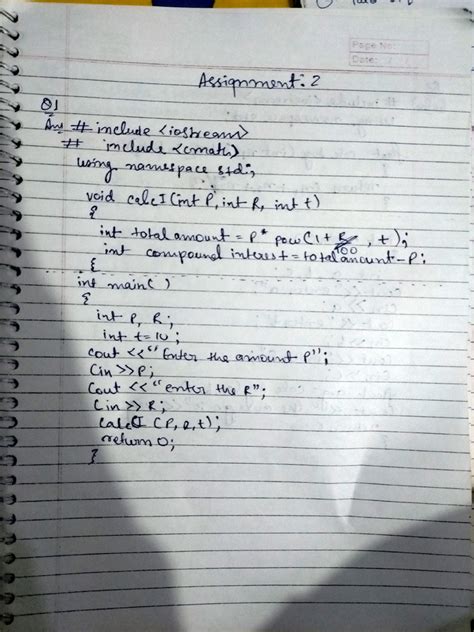 Page No:
Date:
Assignment: 2
Q1
Ans # include <iostream>
# include <cmath>
using namespace std;
void calcI (int P, int R, int t)
{
int total amount = P* pow(1+ R/100 , t);
int compound interest = total amount - P;
}
int main( )
{
int P, R;
int t = 10;
cout << "Enter the amount P";
Cin >> P;
Cout << "enter the R";
Cin >> R;
CalcI (P, R, t);
return 0;
}